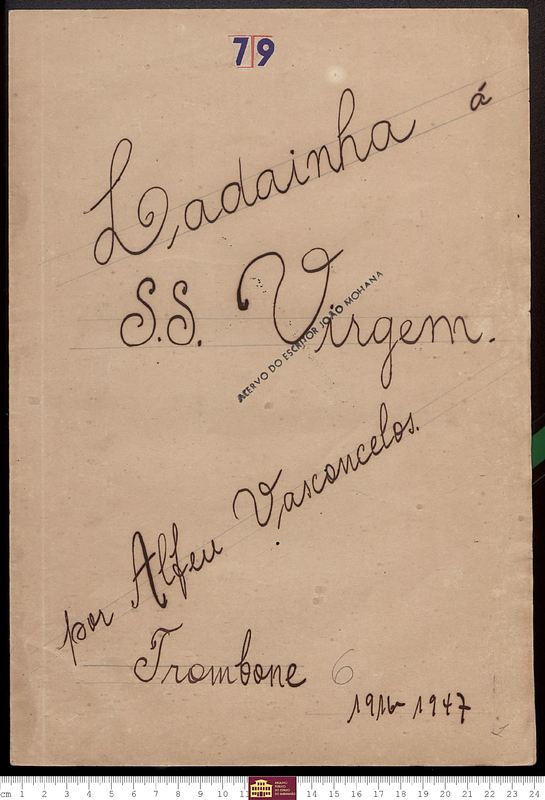 79
Ladainha á
S.S. Virgem.
ACERVO DO ESCRITOR JOÃO MOHANA
por Alfeu Vasconcelos.
Trombone 6
1916-1947
cm 1 2 3 4 5 6 7 8 9 10 14 15 16 17 18 19 20 21 22 23 24